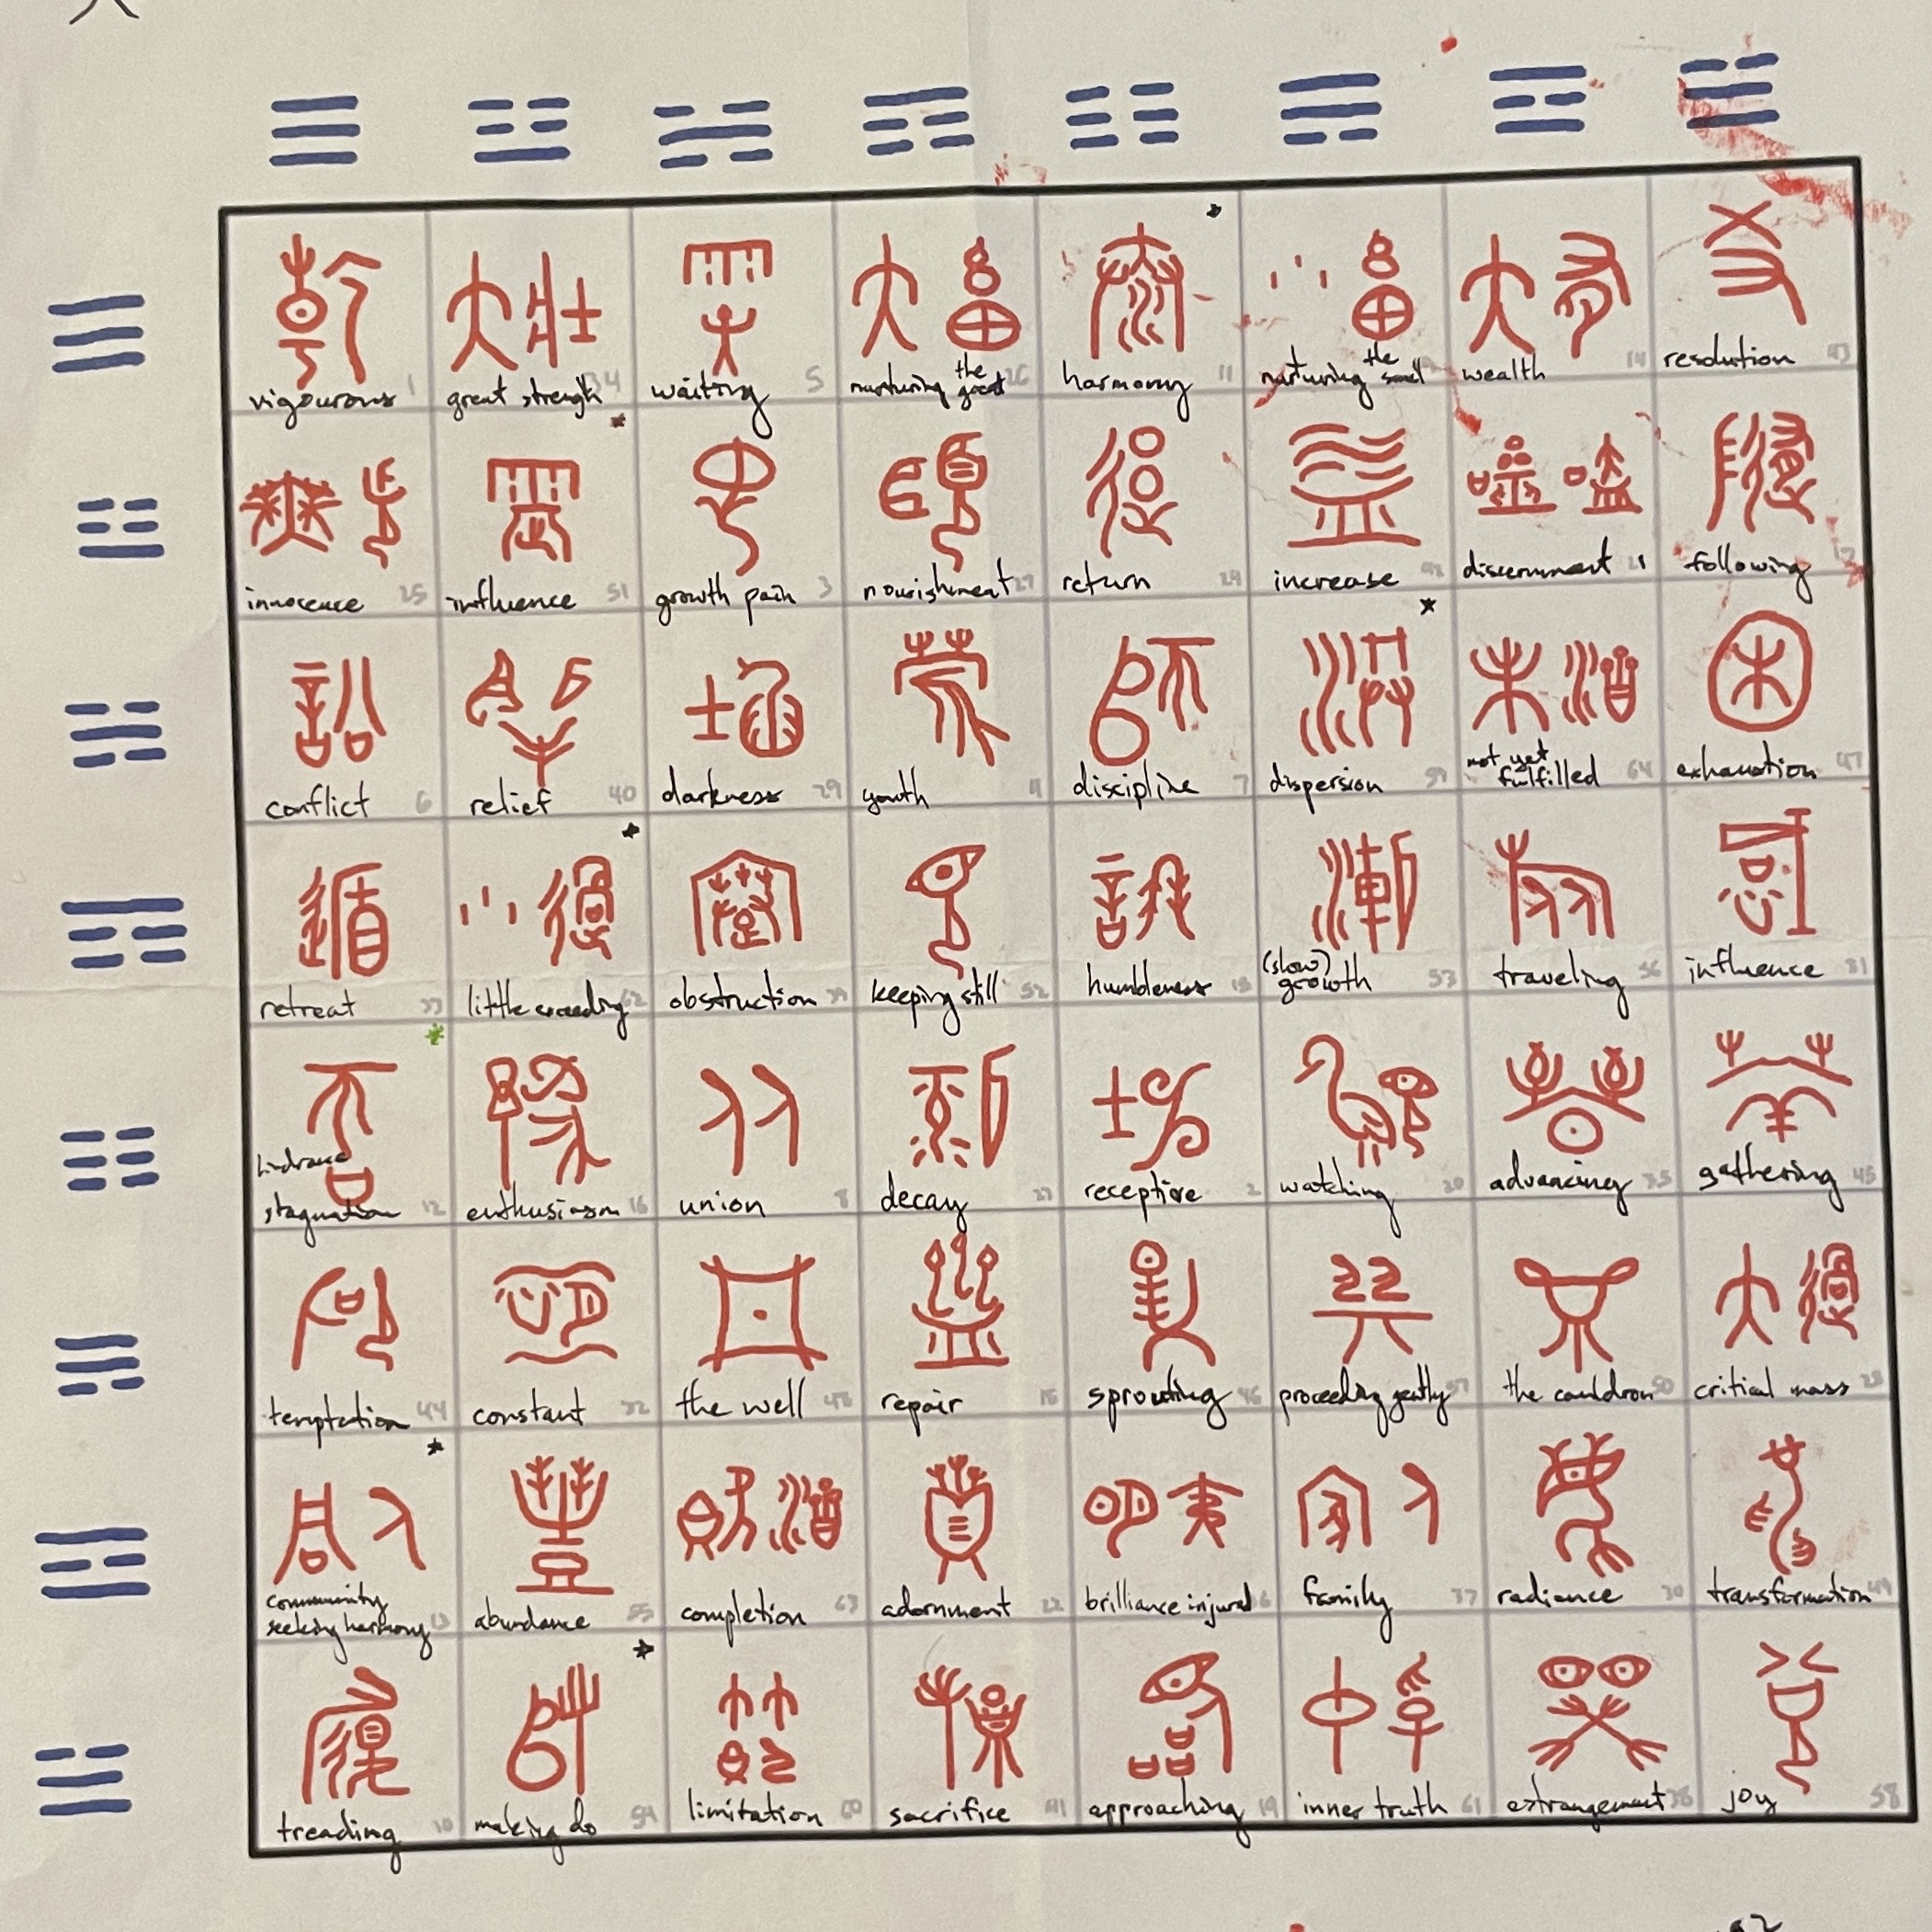 乾
vigourous 1
大壯
great strength 34
需
waiting 5
大畜
the
nurturing great 26
泰
harmony 11
小畜
the
nurturing small
大有
wealth 14
夬
resolution 43
無妄
innocence 25
震
influence 51
屯
growth pain 3
頤
nourishment 27
復
return 24
益
increase 42
噬嗑
discernment 21
隨
following 17
訟
conflict 6
解
relief 40
坎
darkness 29
蒙
youth 4
師
discipline 7
渙
dispersion 59
未濟
not yet
fulfilled 64
困
exhaustion 47
遯
retreat 33
小過
little exceeding 62
蹇
obstruction 39
艮
keeping still 52
謙
humbleness 15
漸
(slow)
growth 53
旅
traveling 56
咸
influence 31
否
hindrance
stagnation 12
豫
enthusiasm 16
比
union 8
剝
decay 23
坤
receptive 2
觀
watching 20
晉
advancing 35
萃
gathering 45
姤
temptation 44
恆
constant 32
井
the well 48
蠱
repair 18
升
sprouting 46
巽
proceeding gently 57
鼎
the cauldron 50
大過
critical mass 28
同人
community
seeking harmony 13
豐
abundance 55
既濟
completion 63
賁
adornment 22
明夷
brilliance injured 36
家人
family 37
離
radiance 30
革
transformation 49
履
treading 10
歸妹
making do 54
節
limitation 60
損
sacrifice 41
臨
approaching 19
中孚
inner truth 61
睽
estrangement 38
兌
joy 58